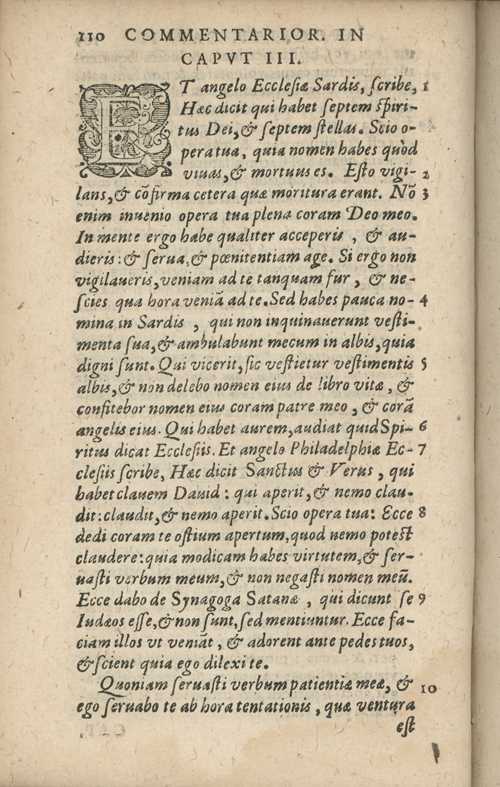 110 COMMENTARIOR. IN
CAPVT III.
ET angelo Ecclesiæ Sardis, scribe, 1
Hæc dicit qui habet septem spiri-
tus Dei, & septem stellas. Scio o-
pera tua, quia nomen habes quòd
viuas, & mortuus es. Esto vigi- 2
lans, & cõfirma cetera quæ moritura erant. Nõ 3
enim inuenio opera tua plena coram Deo meo.
In mente ergo habe qualiter acceperis, & au-
dieris: & serua, & pœnitentiam age. Si ergo non
vigilaueris, veniam ad te tanquam fur, & ne-
scies qua hora veniã ad te. Sed habes pauca no- 4
mina in Sardis, qui non inquinauerunt vesti-
menta sua, & ambulabunt mecum in albis, quia
digni sunt. Qui vicerit, sic vestietur vestimentis 5
albis, & non delebo nomen eius de libro vitæ, &
confitebor nomen eius coram patre meo, & corã
angelis eius. Qui habet aurem, audiat quid Spi- 6
ritus dicat Ecclesiis. Et angelo Philadelphiæ Ec- 7
clesiis scribe, Hæc dicit Sanctus & Verus, qui
habet clauem Dauid: qui aperit, & nemo clau-
dit: claudit, & nemo aperit. Scio opera tua: Ecce 8
dedi coram te ostium apertum, quod nemo potest
claudere: quia modicam habes virtutem, & ser-
uasti verbum meum, & non negasti nomen meũ.
Ecce dabo de Synagoga Satanæ, qui dicunt se 9
Iudæos esse, & non sunt, sed mentiuntur. Ecce fa-
ciam illos vt veniãt, & adorent ante pedes tuos,
& scient quia ego dilexi te.
Quoniam seruasti verbum patientiæ meæ, & 10
ego seruabo te ab hora tentationis, quæ ventura
est